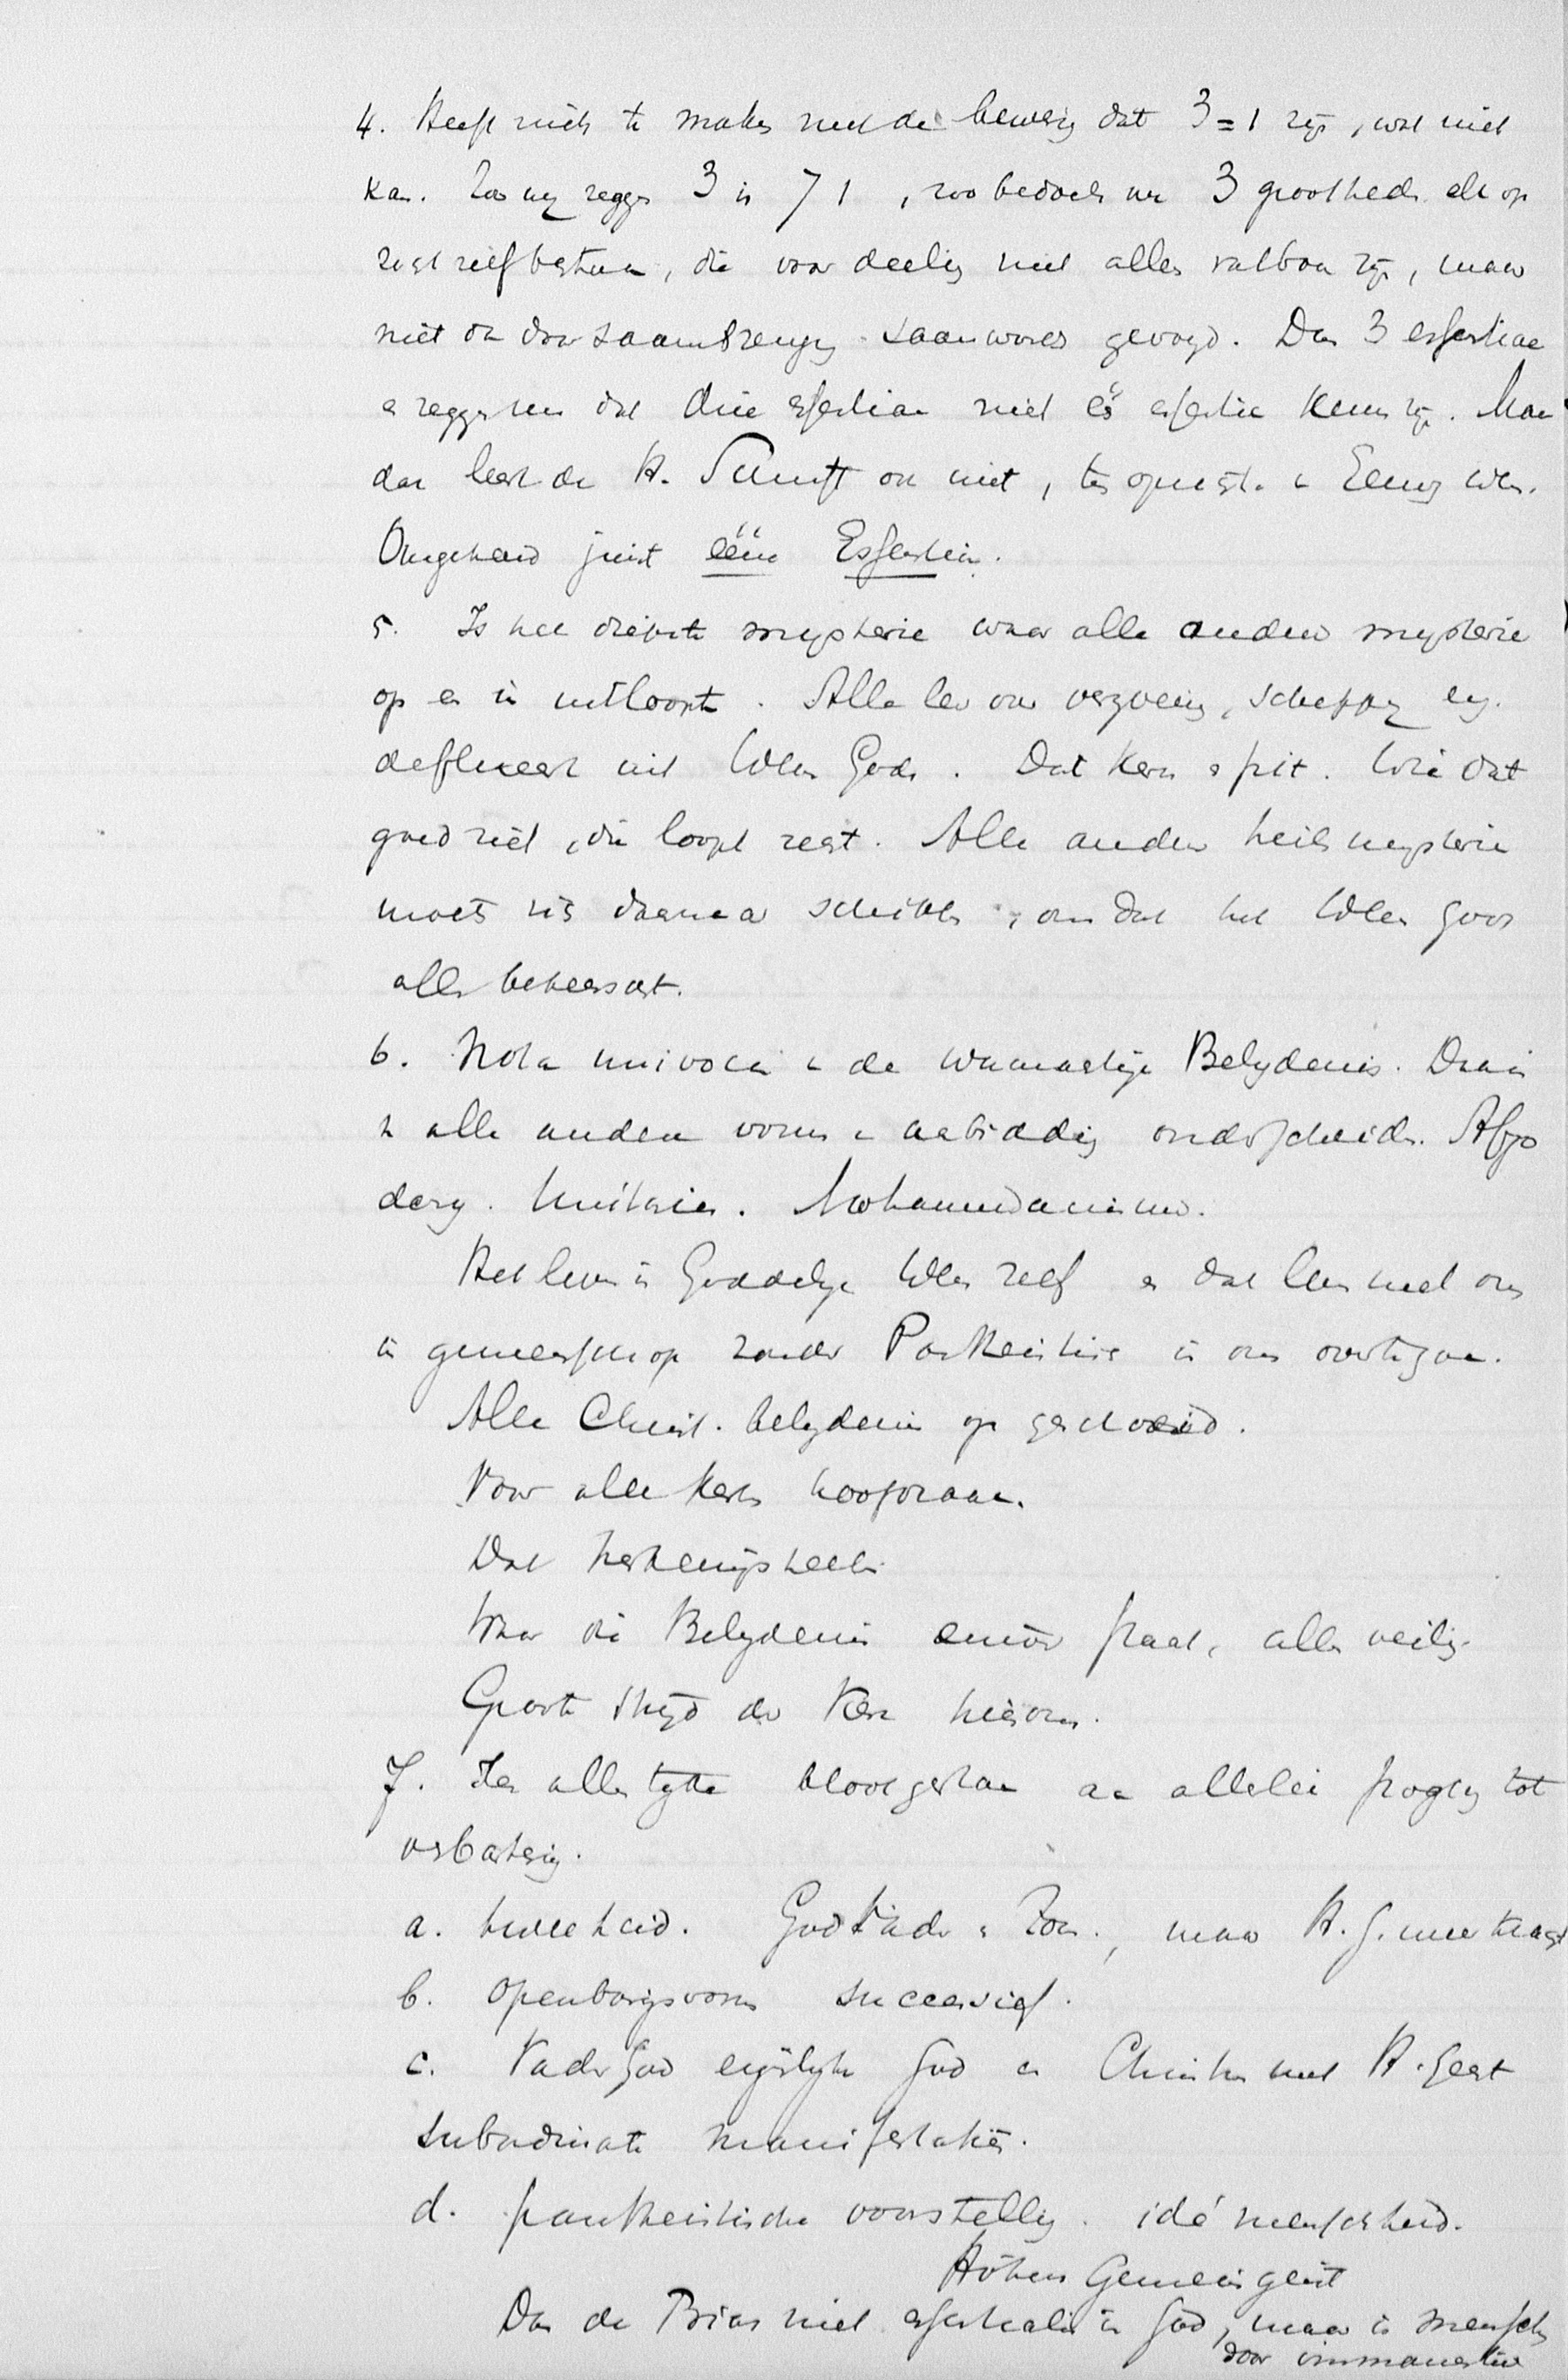 4. Heeft niets te maken met de bewerig dat 3=1 zij, wat niet
kan. Zoo wij zeggen 3 is 7 1, zoo bedoelen we 3 grootheden elk op
zich zelf bestaan, die voor deelig niet alleen vatbaar zijn, maar
niet dan door saambrenging saam worden gevoegd. Dan 3 essentiae
en zeggen we dat drie essentiae niet één essentie kunnen zijn. Maar
dat leert de H. Schrift ook niet, Eenig Wezen.
Omgekeerd juist ééne Essentia.
5. Is het diepste mysterie waar alle andere mysterie
op en in uitloopt. Alle leer over verzoening, schepping enz.
deflueert uit Wezen Gods. Dat kern en pit. Wie dat
goed ziet, die loopt recht. Alle andere heils mysterie
moet zich daarnaar schikken, omdat het Wezen Gods
alles beheerscht.
6. Nota univoca v. de waarachtige Belydenis. Drai
v. alle andere vorm v. aanbidding onderscheiden. Afgo
dery. Unitariër. Mohammedanisme.
Het leven in Goddelyk Wezen zelf en dat leven met ons
in gemeenschap zonder Pantheistisch in ons overtegaan.
Alle Christ. belydenis op geschoeid.
Voor alle kerken hoofdzaak.
Dat herkennings teeken
Waar die Belydenis zuiver staat, alles veilig.
Groote stryd der Kerk hierom.
7. Ten allen tyde blootgestaan aan allerlei poging tot
verbastering.
a. tweeheid. God Vader en Zoon, maar H. G. meer kracht
b. Openbaringsvorm successief.
c. Vader God eigenlyk God en Christus met H. Geest
subordinate manifestatiën.
d. pantheistische voorstelling. idé menschheid.
Höhere Gemeingeist
Dan de Trias niet essentialis in God, maar in mensch
door immanentie